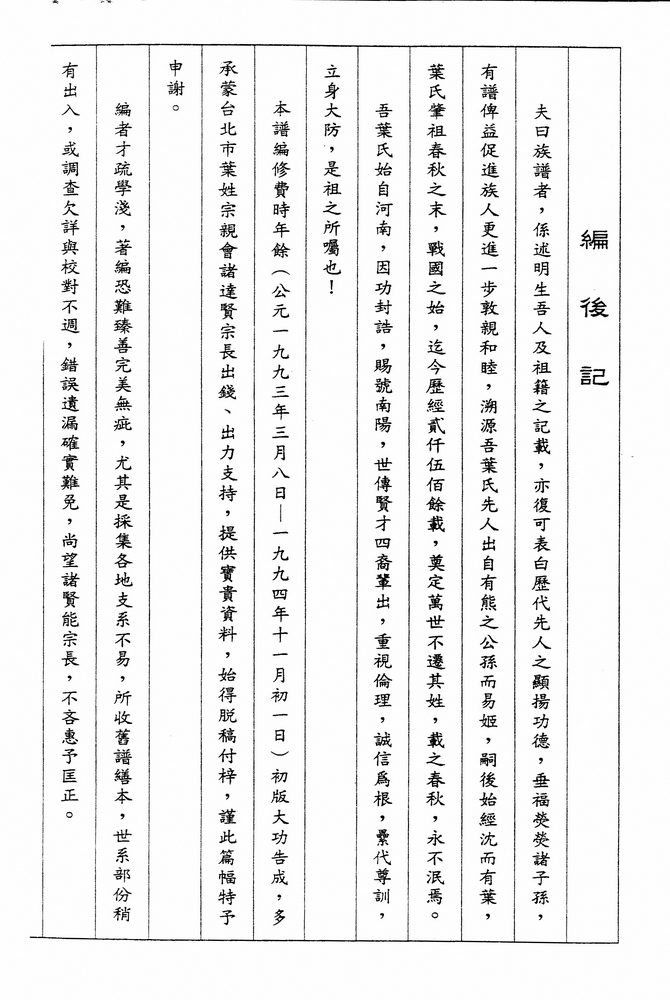 編後記
夫曰族譜者，係述明生吾人及祖籍之記載，亦復可表白歷代先人之顯揚功德，垂福熒熒諸子孫，
有譜俾益促進族人更進一步敦親和睦，溯源吾葉氏先人出自有熊之公孫而易姬，嗣後始經沈而有葉，
葉氏肇祖春秋之末，戰國之始，迄今歷經貳仟伍佰餘載，奠定萬世不遷其姓，載之春秋，永不泯焉。
吾葉氏始自河南，因功封誥，賜號南陽，世傳賢才四裔輩出，重視倫理，誠信爲根，纍代尊訓，
立身大防，是祖之所囑也！
本譜編修費時年餘（公元一九九三年三月八日—一九九四年十一月初一日）初版大功告成，多
承蒙台北市葉姓宗親會諸達賢宗長出錢、出力支持，提供寶貴資料，始得脱稿付梓，謹此篇幅特予
申謝。
編者才疏學淺，著編恐難臻善完美無疵，尤其是採集各地支系不易，所收舊譜繕本，世系部份稍
有出入，或調查欠詳與校對不週，錯誤遺漏確實難免，尚望諸賢能宗長，不吝惠予匡正。